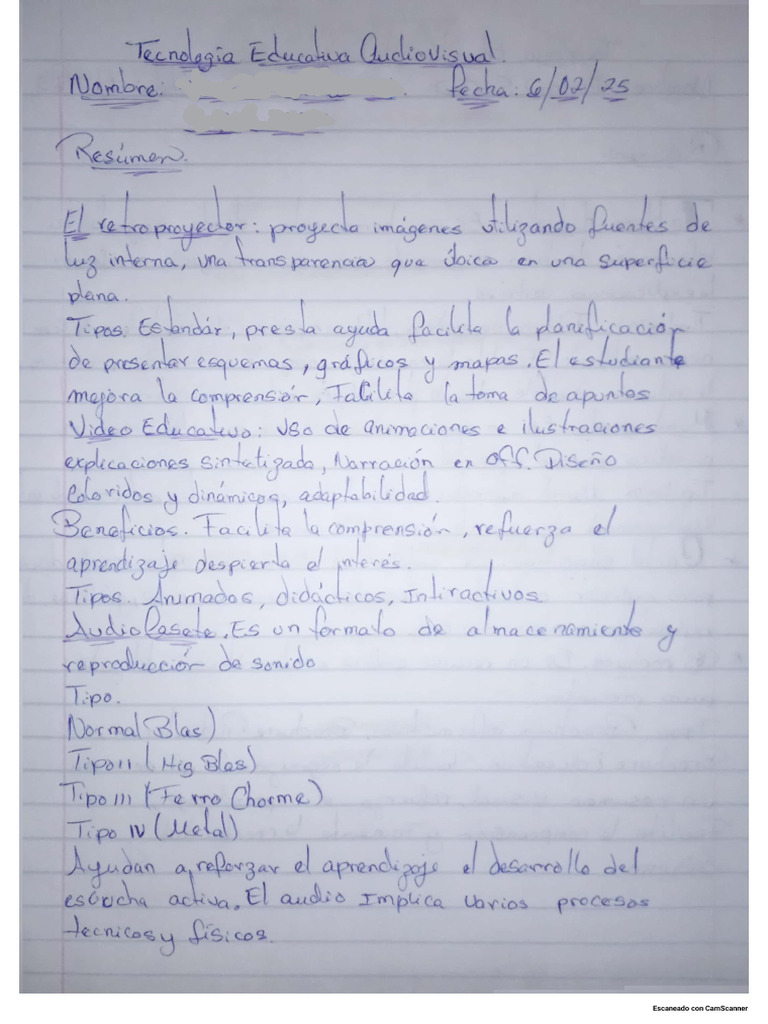 Tecnología Educativa Audiovisual.
Nombre: Fecha: 6/02/25
Resúmen.
El retroproyector: proyecta imágenes utilizando fuentes de
luz interna, una transparencia que úbica en una superficie
plana.
Tipos. Estandár, presta ayuda facilita la planificación
de presentar esquemas, gráficos y mapas. El estudiante
mejora la comprensión, Facilita la toma de apuntes
Video Educativo: Uso de animaciones e ilustraciones
explicaciones sintetizada, Narración en off. Diseño
Coloridos y dinámicos, adaptabilidad.
Beneficios. Facilita la comprensión, refuerza el
aprendizaje despierta el interés.
Tipos. Animados, didácticos, Intiractivos
Audio Casete. Es un formato de almacenamiento y
reproducción de sonido
Tipo.
Normal Blas)
Tipo II (Hig Blas)
Tipo III (Ferro Chorme)
Tipo IV (Metal)
Ayudan a reforzar el aprendizaje el desarrollo del
escucha activa. El audio Implica varios procesos
tecnicos y físicos.
Escaneado con CamScanner